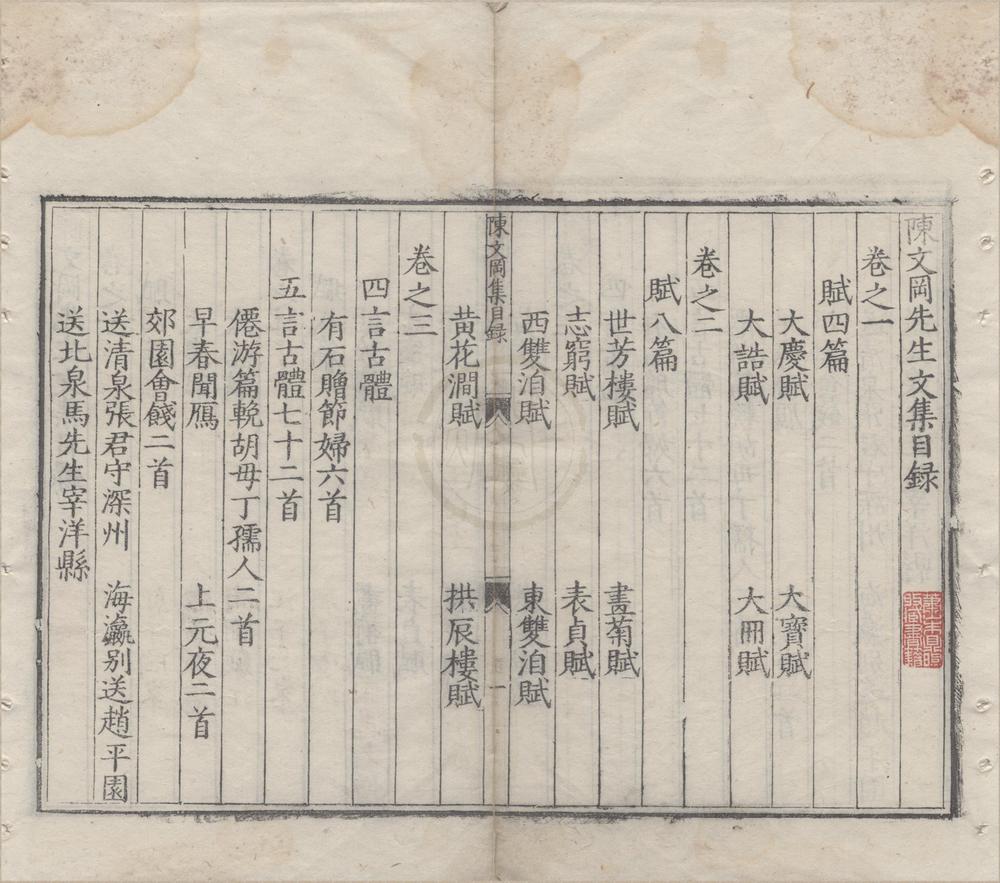 陳文岡先生文集目録
卷之一
賦四篇
大慶賦 大寶賦
大誥賦 大冊賦
卷之二
賦八篇
世芳樓賦 畫菊賦
志窮賦 表貞賦
西雙洎賦 東雙洎賦
黃花澗賦 拱辰樓賦
陳文岡集目録 一
卷之三
四言古體
有石贈節婦六首
五言古體七十二首
僊游篇輓胡母丁孺人二首
早春聞鴈 上元夜二首
郊園會餞二首
送清泉張君守深州 海瀛别送趙平園
送北泉馬先生宰洋縣